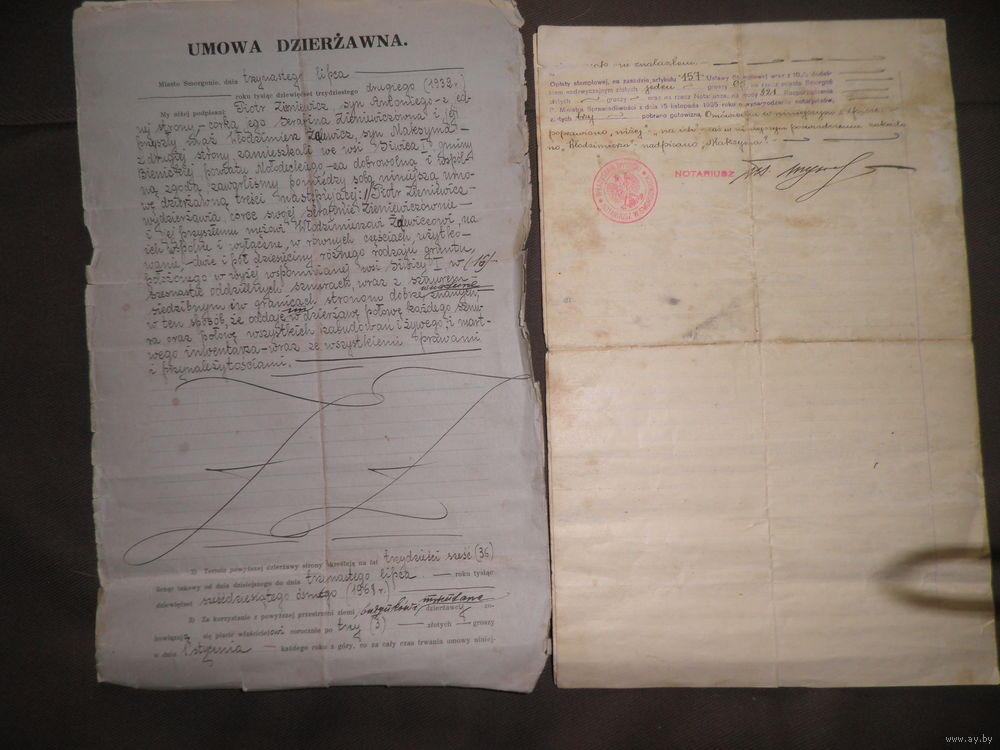 UMOWA DZIERŻAWNA.
Miasto Smorgonie, dnia trzynastego lipca
roku tysiąc dziewięćset trzydziestego drugiego (1932 r.)
My niżej podpisani Piotr Zieniewicz, syn Antoniego - z ed-
nej strony - córka jego Serafina Zieniewiczówna i jej
przyszły mąż Włodzimierz Zajewicz, syn Maksyma -
z drugiej strony, zamieszkali we wsi Siwica I, gminy
Bienickiej, powiatu Mołodeckiego - za dobrowolną i wspól-
ną zgodą zawarliśmy pomiędzy sobą niniejszą umo-
wę dzierżawną treści następującej: 1) Piotr Zieniewicz -
wydzierżawia córce swojej Serafinie Zieniewiczównie -
i jej przyszłemu mężowi Włodzimierzowi Zajewiczowi, na
ich wspólne i wyłączne, w równych częściach, użytko-
wanie, - dwie i pół dziesięciny różnego rodzaju gruntu,
położonego w wyżej wspomnianej wsi Siwicy I w (16) -
szesnastu oddzielnych sznurach, wraz z sznurem -
siedzibnym i w granicach stronom dobrze znanych,
w ten sposób, że oddaje w dzierżawę połowę każdego sznu-
ra oraz połowę wszystkich zabudowań i żywego i mart-
wego inwentarza - wraz ze wszystkiemi prawami
i przynależytościami.
2) Termin powyższej dzierżawy strony określają na lat trzydzieści sześć (36)
licząc takowy od dnia dzisiejszego do dnia trzynastego lipca roku tysiąc
dziewięćset sześćdziesiątego ósmego (1968 r.)
3) Za korzystanie z powyższej przestrzeni ziemi budynków i inwentarza dzierżawcy zo-
bowiązują się płacić właścicielowi corocznie po trzy (3) złotych groszy
w dniu 1 stycznia każdego roku z góry, co za cały czas trwania umowy niniej-
nie znalazłem.
Opłaty stemplowej, na zasadzie artykułu 157 Ustawy Stemplowej wraz z 10% dodat-
kiem nadzwyczajnym złotych jeden groszy na rzecz miasta Smorgoń
złotych groszy oraz na rzecz Notariusza, na mocy §21 Rozporządzenia
P. Ministra Sprawiedliwości z dnia 15 listopada 1925 roku o wynagrodzeniu notariuszów,
złotych trzy pobrano gotowizną. Omówiono: w niniejszym
poprawiono, "niżej" - zaś w niniejszym poświadczeniu zakreślo-
no, "Włodzimierza" nadpisano "Maksyma".
NOTARIUSZ
www.ay.by